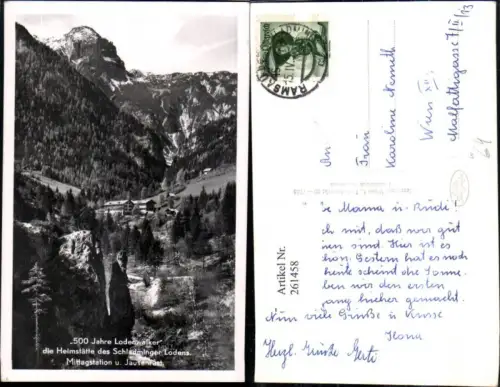 „500 Jahre Lodenwalker"
die Heimstätte des Schladminger Lodens
Mittagstation u. Jausenrast
RAMSAU
An
Frau
Karoline Nemeth
Wien XII
Malfattigasse 7/II/13
Artikel Nr.
261458
e Mama u. Rudi!
ch mit, daß wir gut
sind. Hier ist es
hon. Gestern hat es noch
heute scheint die Sonne
ben wir den ersten
gang bisher gemacht.
Nun viele Grüße u. Küsse
Ilona
Herzl. Grüße